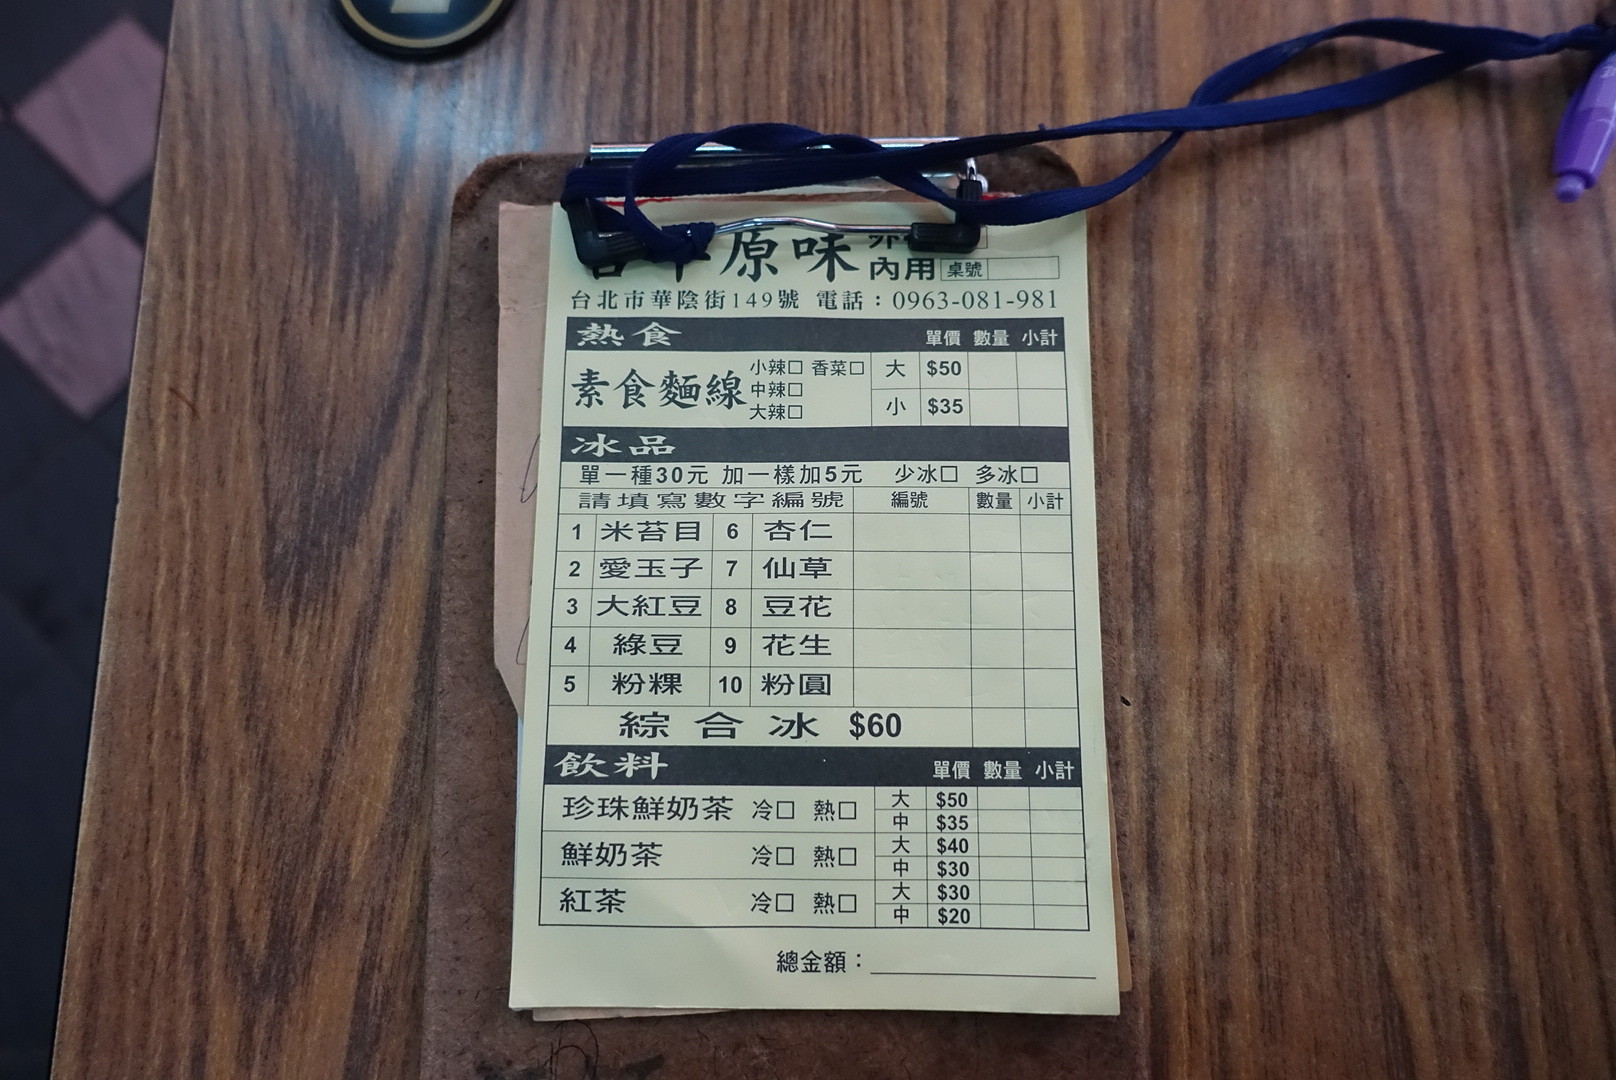 原味 內用 桌號
台北市華陰街149號 電話：0963-081-981
熱食 單價 數量 小計
素食麵線 小辣□ 香菜□ 大 $50
中辣□
大辣□ 小 $35
冰品
單一種30元 加一樣加5元 少冰□ 多冰□
請填寫數字編號 編號 數量 小計
1 米苔目 6 杏仁
2 愛玉子 7 仙草
3 大紅豆 8 豆花
4 綠豆 9 花生
5 粉粿 10 粉圓
綜合冰 $60
飲料 單價 數量 小計
珍珠鮮奶茶 冷□ 熱□ 大 $50
中 $35
鮮奶茶 冷□ 熱□ 大 $40
中 $30
紅茶 冷□ 熱□ 大 $30
中 $20
總金額：